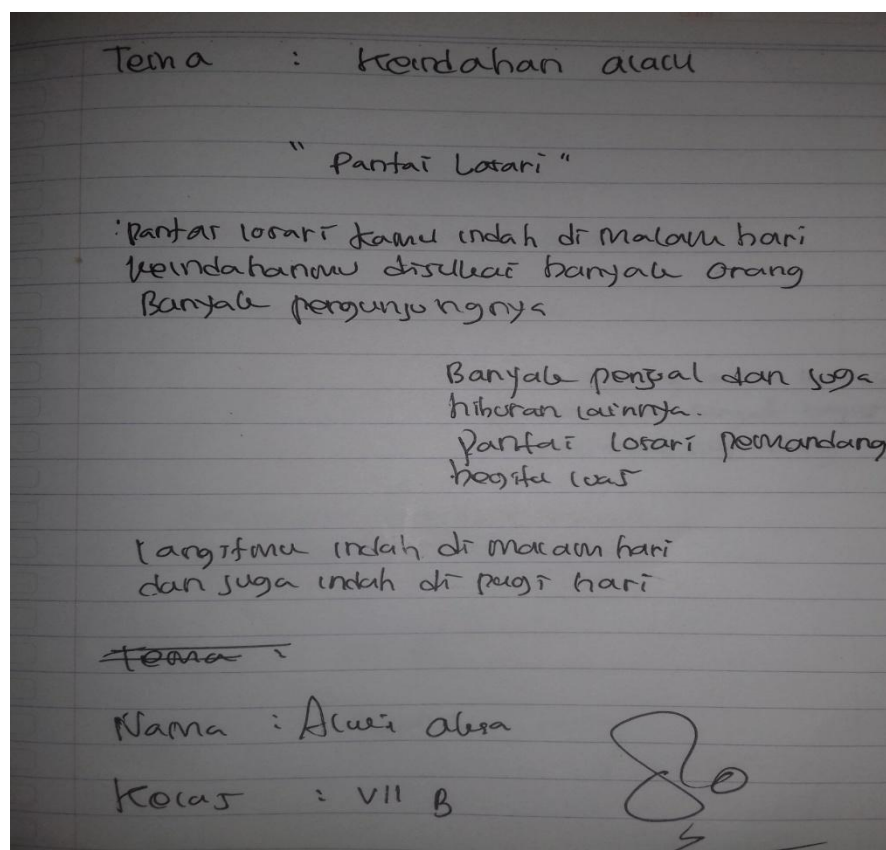 Tema : Keindahan alam
"Pantai Losari"
Pantai losari kamu indah di malam hari
keindahanmu disukai banyak orang
Banyak pengunjungnya
Banyak penjual dan juga
hiburan lainnya.
Pantai losari pemandang
begitu luas
langitmu indah di malam hari
dan juga indah di pagi hari
Tema :
Nama :
Kelas : VII B
80